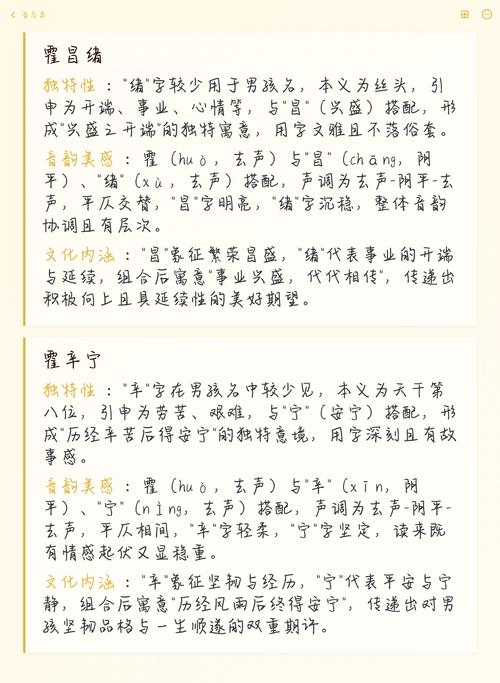 霍昌绪
独特性：“绪”字较少用于男孩名，本义为丝头，引
申为开端、事业、心情等，与“昌”（兴盛）搭配，形
成“兴盛之开端”的独特寓意，用字文雅且不落俗套。
音韵美感：霍（huò，去声）与“昌”（chāng，阴
平）、“绪”（xù，去声）搭配，声调为去声-阴平-去
声，平仄交替，“昌”字明亮，“绪”字沉稳，整体音韵
协调且有层次。
文化内涵：“昌”象征繁荣昌盛，“绪”代表事业的开端
与延续，组合后寓意“事业兴盛，代代相传”，传递出
积极向上且具延续性的美好期望。
霍辛宁
独特性：“辛”字在男孩名中较少见，本义为天干第
八位，引申为劳苦、艰难，与“宁”（安宁）搭配，形
成“历经辛苦后得安宁”的独特意境，用字深刻且有故
事感。
音韵美感：霍（huò，去声）与“辛”（xīn，阴
平）、“宁”（nìng，去声）搭配，声调为去声-阴平-
去声，平仄相间，“辛”字轻柔，“宁”字坚定，读来既
有情感起伏又显稳重。
文化内涵：“辛”象征坚韧与经历，“宁”代表平安与宁
静，组合后寓意“历经风雨后终得安宁”，传递出对男
孩坚韧品格与一生顺遂的双重期许。